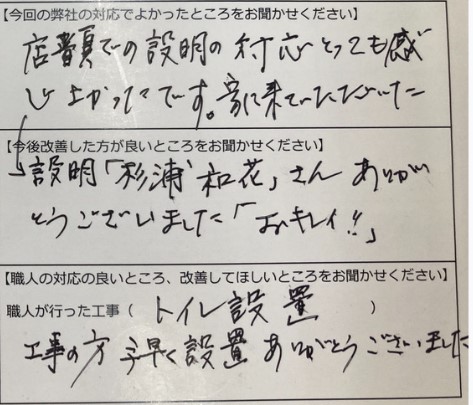 【今回の弊社の対応でよかったところをお聞かせください】
店頭での説明の対応とっても感
じよかったです。家に来ていただいた
【今後改善した方が良いところをお聞かせください】
説明「杉浦和花」さんありが
とうございました「おキレイ!!」
【職人の対応の良いところ、改善してほしいところをお聞かせください】
職人が行った工事(トイレ設置)
工事の方手早く設置ありがとうございました